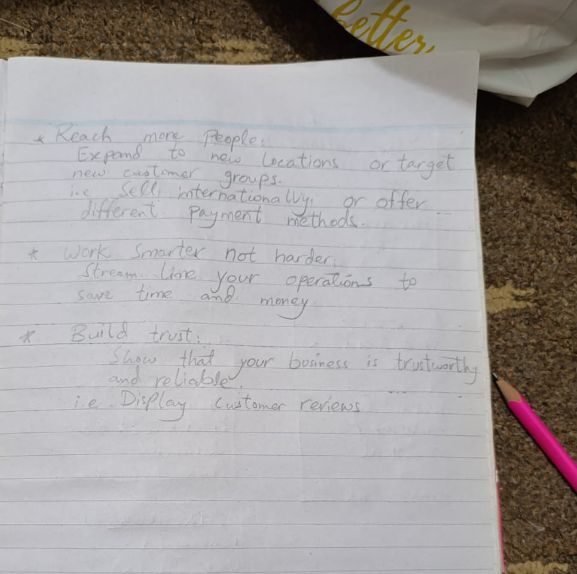 better,
* Reach more People:
Expand to new locations or target
new customer groups.
i.e Sell internationally, or offer
different Payment methods.
* Work Smarter not harder:
Stream Line your operations to
save time and money
* Build trust:
Show that your business is trustworthy
and reliable.
i.e Display customer reviews